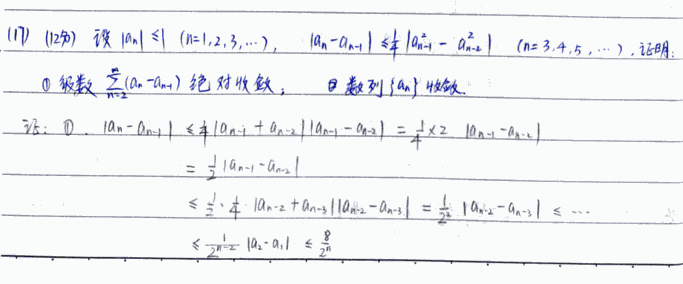 (17) (12分) 设 |aₙ| ≤ 1 (n=1,2,3,⋯), |aₙ-aₙ₋₁| ≤ 1/4 |a²ₙ₋₁ - a²ₙ₋₂| (n=3,4,5,⋯). 证明:
① 级数 ∑_{n=2}^{∞}(aₙ-aₙ₋₁) 绝对收敛; ② 数列{aₙ}收敛.
证: ①. |aₙ-aₙ₋₁| ≤ 1/4 |aₙ₋₁ + aₙ₋₂||aₙ₋₁ - aₙ₋₂| = 1/4 × 2 |aₙ₋₁ - aₙ₋₂|
= 1/2 |aₙ₋₁ - aₙ₋₂|
≤ 1/2 · 1/4 · |aₙ₋₂ + aₙ₋₃||aₙ₋₂ - aₙ₋₃| = 1/2² |aₙ₋₂ - aₙ₋₃| ≤ ⋯
≤ 1/2ⁿ⁻² |a₂ - a₁| ≤ 8/2ⁿ